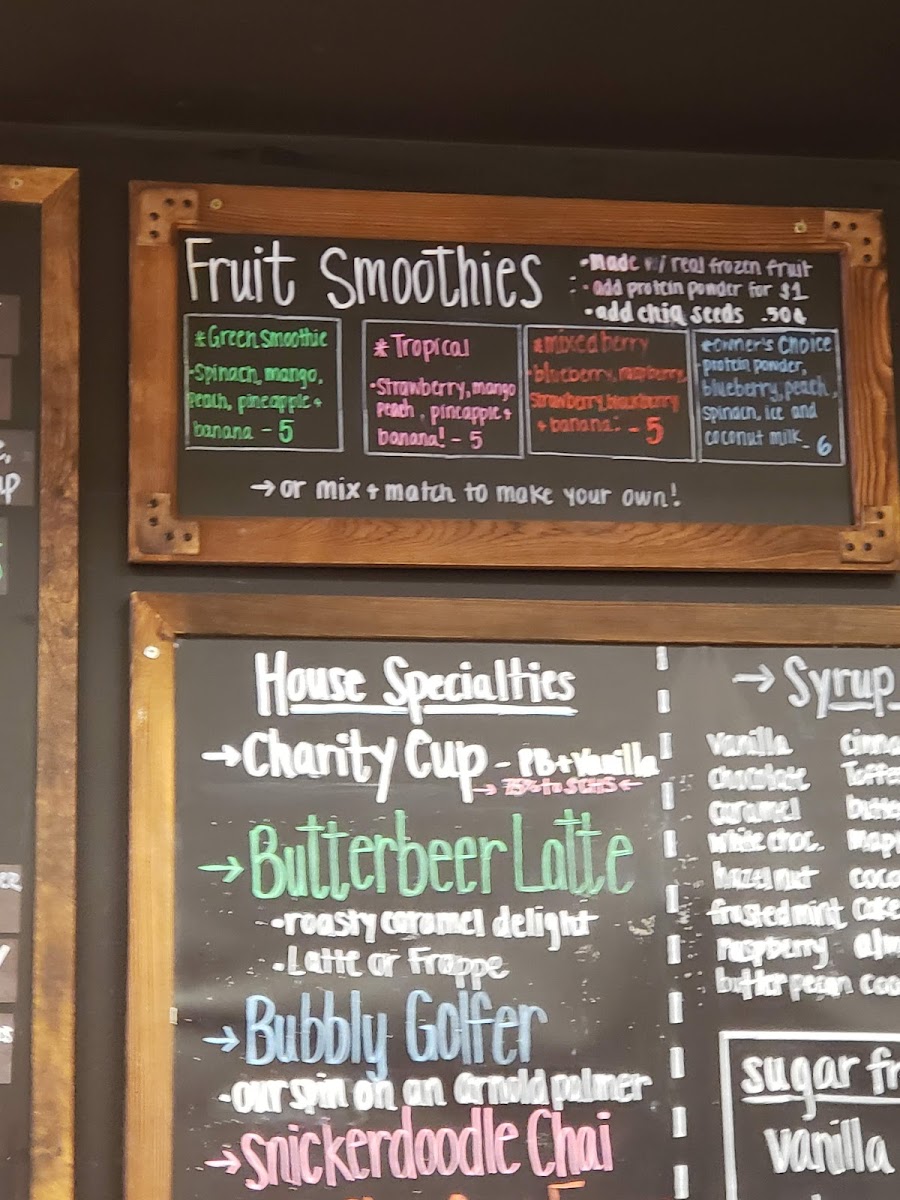 Fruit Smoothies
•made w/ real frozen fruit
•add protein powder for $1
•add chia seeds .50¢
*Green smoothie
•Spinach, mango,
peach, pineapple +
banana - 5
*Tropical
•Strawberry, mango
peach, pineapple +
banana! - 5
*mixed berry
•blueberry, raspberry,
strawberry, blackberry
+ banana! - 5
*owner's choice
protein powder,
blueberry, peach,
spinach, ice and
coconut milk - 6
→or mix + match to make your own!
House Specialties
→Charity Cup - PB+Vanilla
→ 75% to SCHS ←
→Butterbeer Latte
•roasty caramel delight
•Latte or Frappe
→Bubbly Golfer
•our spin on an arnold palmer
→Snickerdoodle Chai
→ Syrup
vanilla cinna
chocolate Toffe
caramel butte
white choc. map
hazelnut coco
frosted mint cake
raspberry alm
butter pecan coo
sugar fr
vanilla